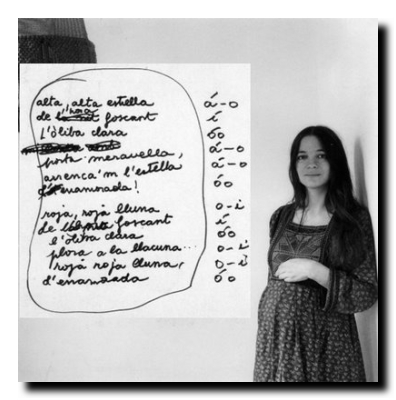 alta, alta estrella á-o
de hora foscant í
l'òliba clara óo
porta meravella, á-o
arrenca'm l'estella á-o
d'enamorada! óo
roja, roja lluna o-i
de foscant í
l'òliba clara óo
plora a la llacuna... o-i
roja roja lluna, o-i
d'enamorada óo